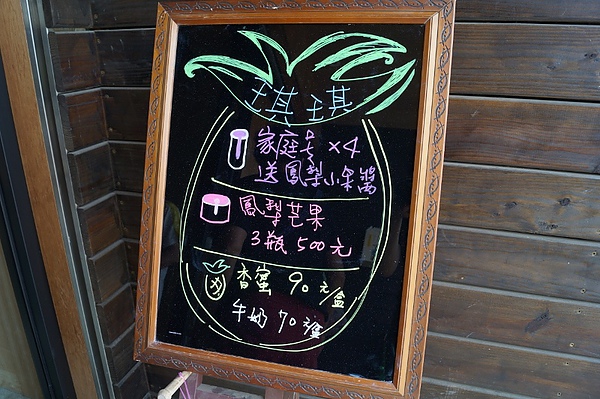 琪琪
家庭号 ×4
送鳳梨小米醬
鳳梨芒果
3瓶 500元
香蜜 90元/盒
牛奶 70元/盒